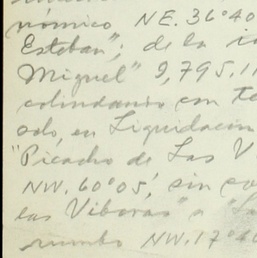 nómico NE. 36°40
Esteban"; de la
Miguel" 9,795.11
colindando con te
solo, en Liquidación
"Picacho de Las V
NW. 60°05', sin co
las Viboras" a "La
rumbo NW. 17°40